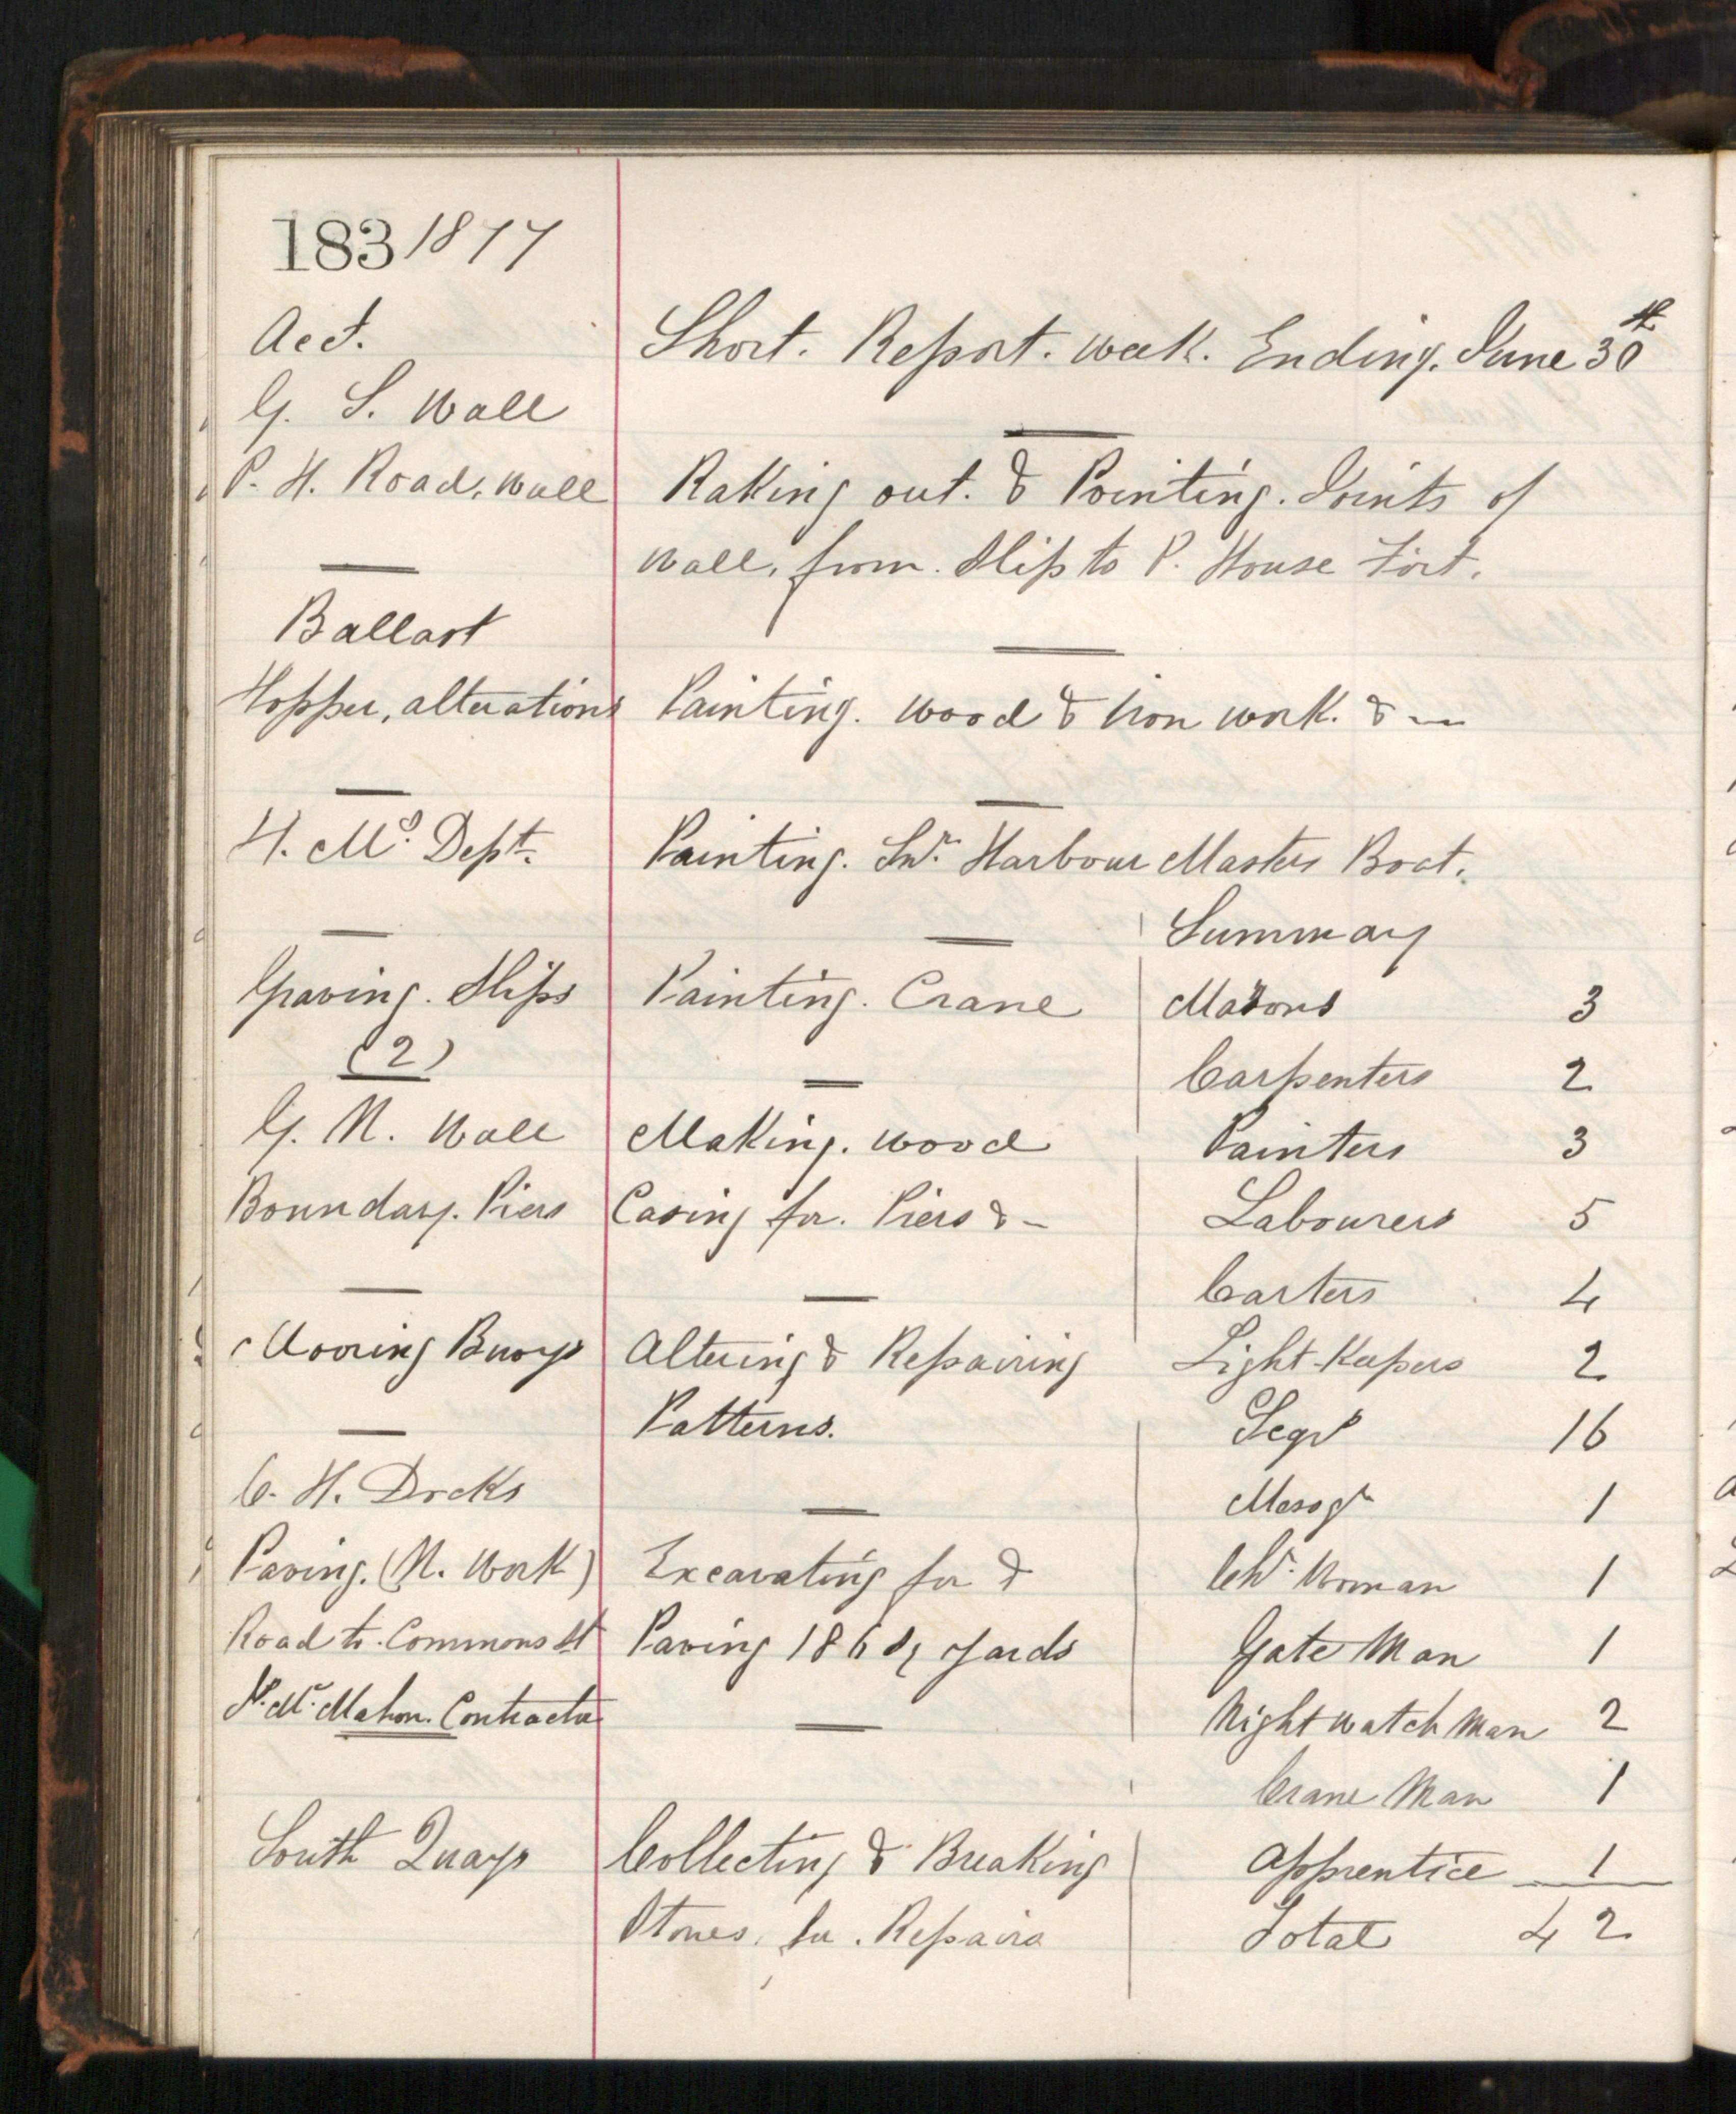 183 1877
Acct.
Short. Report. Week. Ending. June 30th
G. S. Wall
P. H. Road, Wall
Raking out. & Pointing. Joints of
Wall, from. Slip to P. House Fort.
Ballast
Hopper, alterations
Painting. Wood & Iron work. &
H. Ms. Dept.
Painting. Harbour Masters Boat.
Graving. Slips
(2)
Painting. Crane
G. N. Wall
Boundary. Piers
Making. Wood
Casing for. Piers &
Mooring Buoys
Altering & Repairing
Patterns.
C. H. Docks
Paving. (N. Work)
Road to. Commons St
Mc. Mahon. Contractor
Excavating for &
Paving yards
South Quays
Collecting & Breaking
Stones, for. Repairs
Summary
Masons 3
Carpenters 2
Painters 3
Labourers 5
Carters 4
Light-Keepers 2
16
Messgr 1
Chr. Woman 1
Gate Man 1
Night watch Man 2
Crane Man 1
Apprentice 1
Total 42